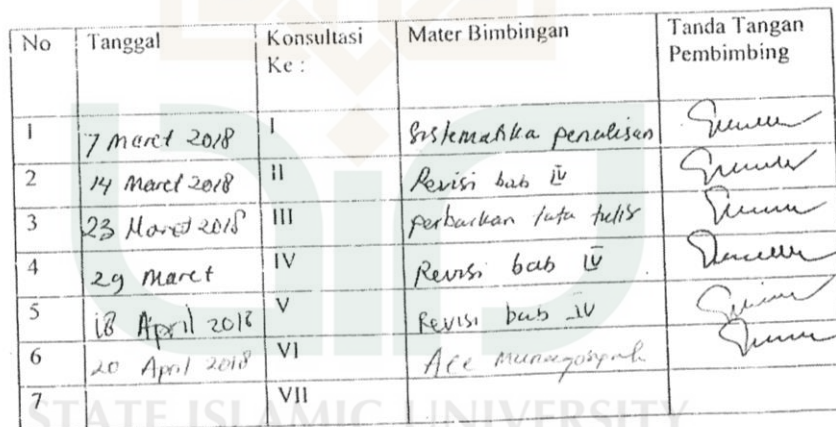 No Tanggal Konsultasi Ke : Mater Bimbingan Tanda Tangan Pembimbing
1 7 Maret 2018 I Sistematika penulisan
2 14 Maret 2018 II Revisi bab IV
3 23 Maret 2018 III perbaikan tata tulis
4 29 Maret IV Revisi bab IV
5 18 April 2018 V Revisi bab IV
6 20 April 2018 VI Acc Munaqosyah
7 VII
STATE ISLAMIC UNIVERSITY